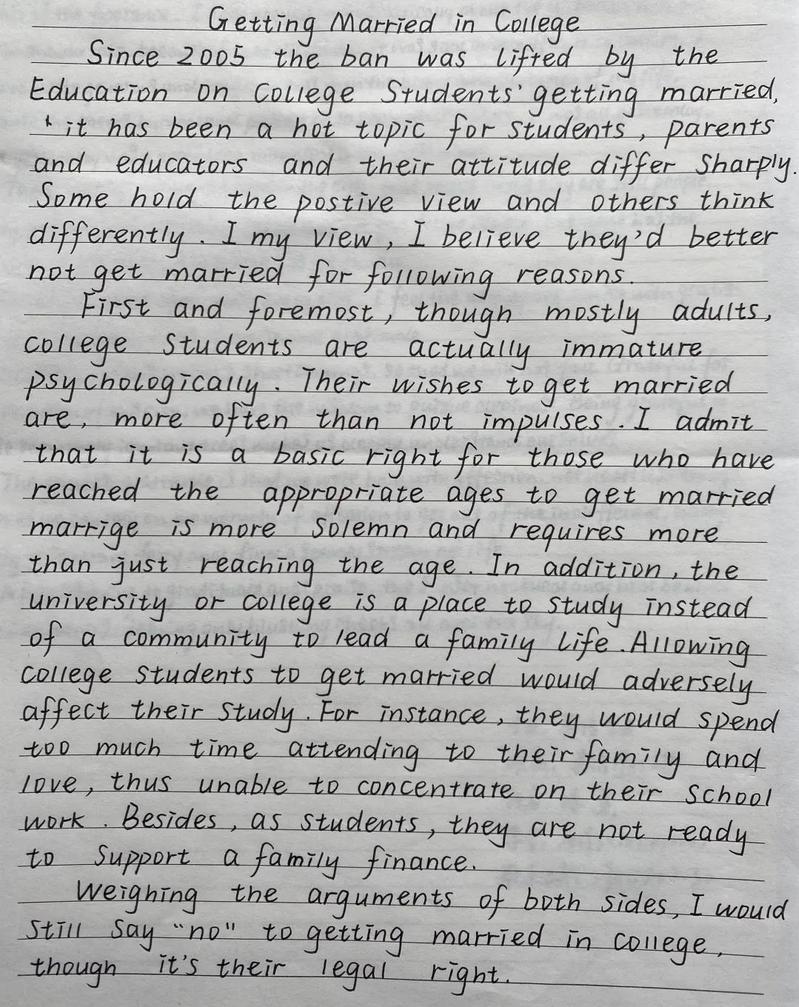 Getting Married in College
Since 2005 the ban was lifted by the
Education on College Students' getting married,
it has been a hot topic for students, parents
and educators and their attitude differ sharply.
Some hold the postive view and others think
differently. I my view, I believe they'd better
not get married for following reasons.
First and foremost, though mostly adults,
college students are actually immature
psychologically. Their wishes to get married
are, more often than not impulses. I admit
that it is a basic right for those who have
reached the appropriate ages to get married
marrige is more solemn and requires more
than just reaching the age. In addition, the
university or college is a place to study instead
of a community to lead a family life. Allowing
college students to get married would adversely
affect their study. For instance, they would spend
too much time attending to their family and
love, thus unable to concentrate on their school
work. Besides, as students, they are not ready
to support a family finance.
Weighing the arguments of both sides, I would
still say "no" to getting married in college,
though it's their legal right.